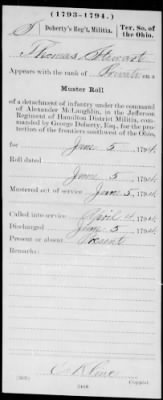 (1793-1794.)
S Doherty's Reg't, Militia. Ter. So. of the Ohio.
Thomas Stewart
Appears with the rank of Private on a
Muster Roll
of a detachment of infantry under the command
of Alexander McLaughlin, in the Jefferson
Regiment of Hamilton District Militia, commanded
by George Doherty, Esq., for the protection
of the frontiers southwest of the Ohio,
for June 5, 1794.
Roll dated
June 5, 1794.
Mustered out of service June 5, 1794.
Called into service April 4, 1794.
Discharged June 5, 1794.
Present or absent Present
Remarks:
Copyist.